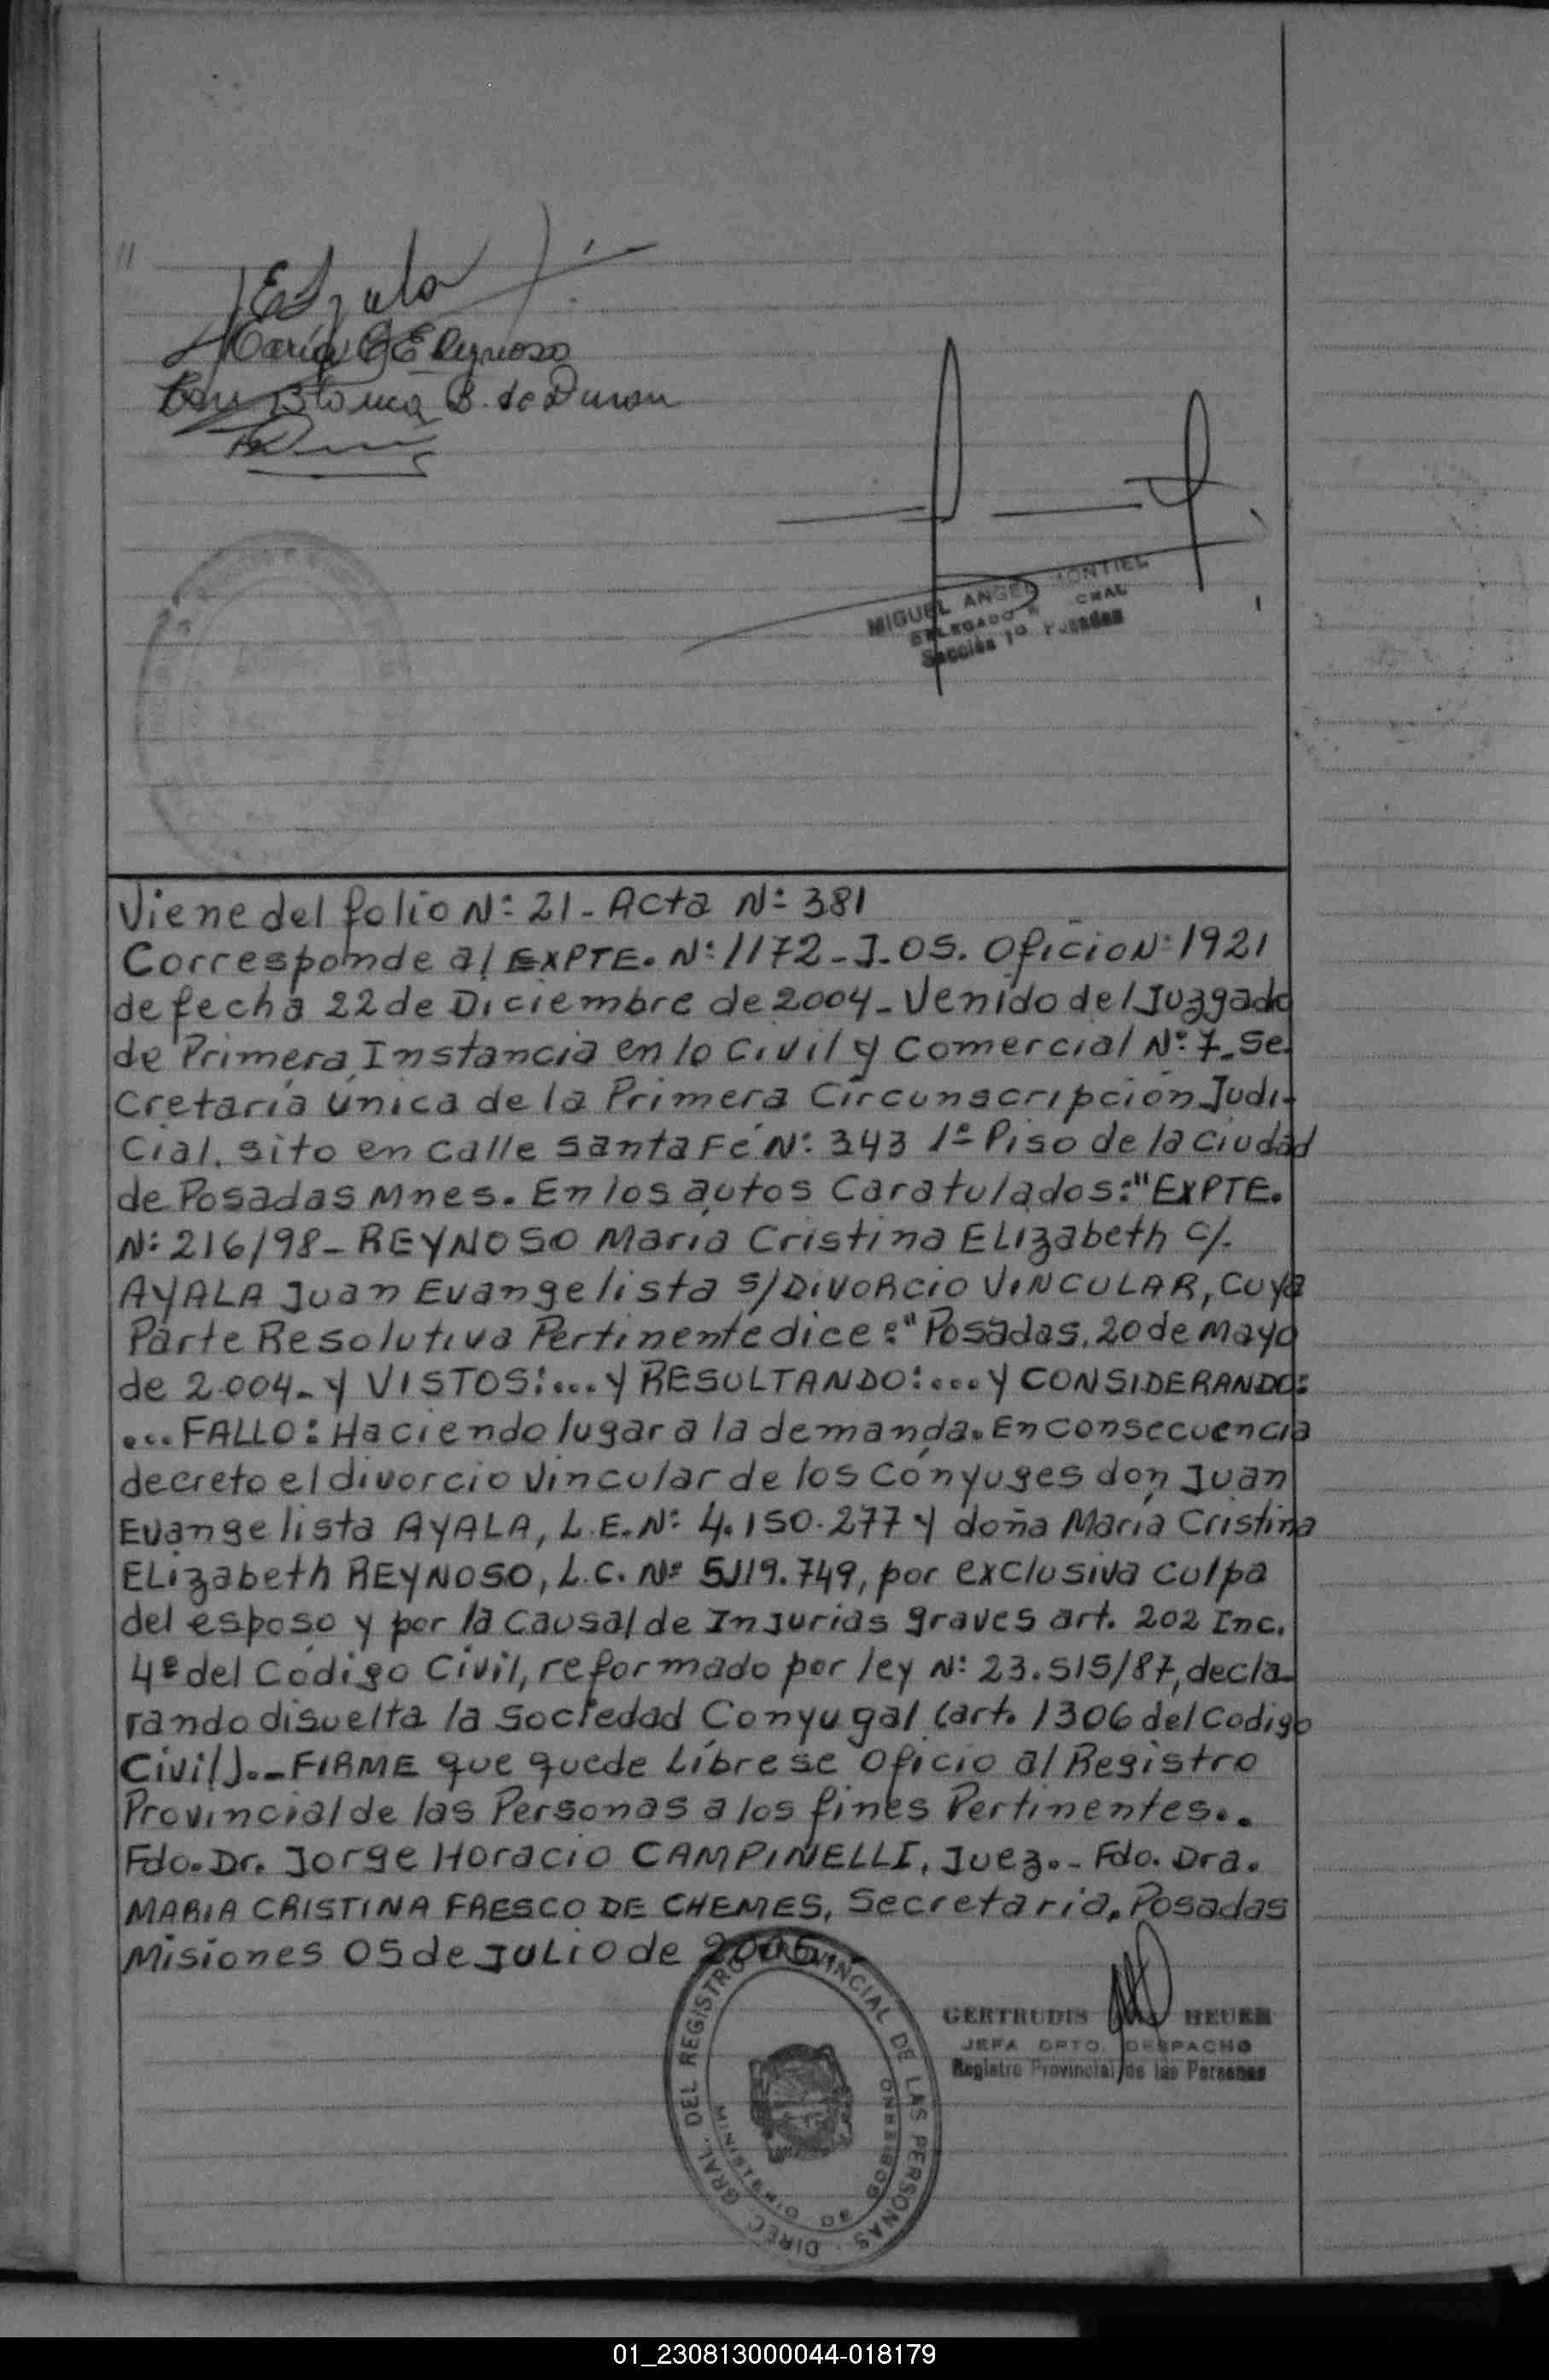 "
María C E Reynoso
Blanca B. de Duran
MIGUEL ANGEL MONTIEL
DELEGADO
Sección 1º Posadas
Viene del folio Nº 21 - Acta Nº 381
Corresponde al EXPTE. Nº 1172 - J - 05. Oficio Nº 1921
de fecha 22 de Diciembre de 2004 - Venido del Juzgado
de Primera Instancia en lo Civil y Comercial Nº 7 - Se
cretaria única de la Primera Circunscripción Judi-
cial. sito en calle Santa Fé Nº 343 1º Piso de la ciudad
de Posadas Mnes. En los autos Caratulados: "EXPTE.
Nº 216/98 - REYNOSO María Cristina ELizabeth c/.
AYALA Juan Evangelista s/DIVORCIO VINCULAR, cuya
Parte Resolutiva Pertinente dice: "Posadas, 20 de mayo
de 2.004 - y VISTOS: ... y RESULTANDO: ... y CONSIDERANDO:
... FALLO: Haciendo lugar a la demanda. En consecuencia
decreto el divorcio vincular de los cónyuges don Juan
Evangelista AYALA, L.E. Nº 4.150.277 y doña María Cristina
ELizabeth REYNOSO, L.C. Nº 5.119.749, por exclusiva culpa
del esposo y por la causal de Injurias graves art. 202 Inc.
4º del Código Civil, reformado por ley Nº 23.515/87, decla-
rando disuelta la Sociedad Conyugal (art. 1306 del Codigo
Civil). - FIRME que quede Líbrese Oficio al Registro
Provincial de las Personas a los fines Pertinentes..
Fdo. Dr. Jorge Horacio CAMPINELLI, Juez. - Fdo. Dra.
MARIA CRISTINA FRESCO DE CHEMES, Secretaria, Posadas
Misiones 05 de JULIO de 2005
GERTRUDIS HEUER
JEFA DPTO. DESPACHO
Registro Provincial de las Personas
DIREC. GRAL. DEL REGISTRO PROVINCIAL DE LAS PERSONAS
MINISTERIO DE GOBIERNO
01_230813000044-018179